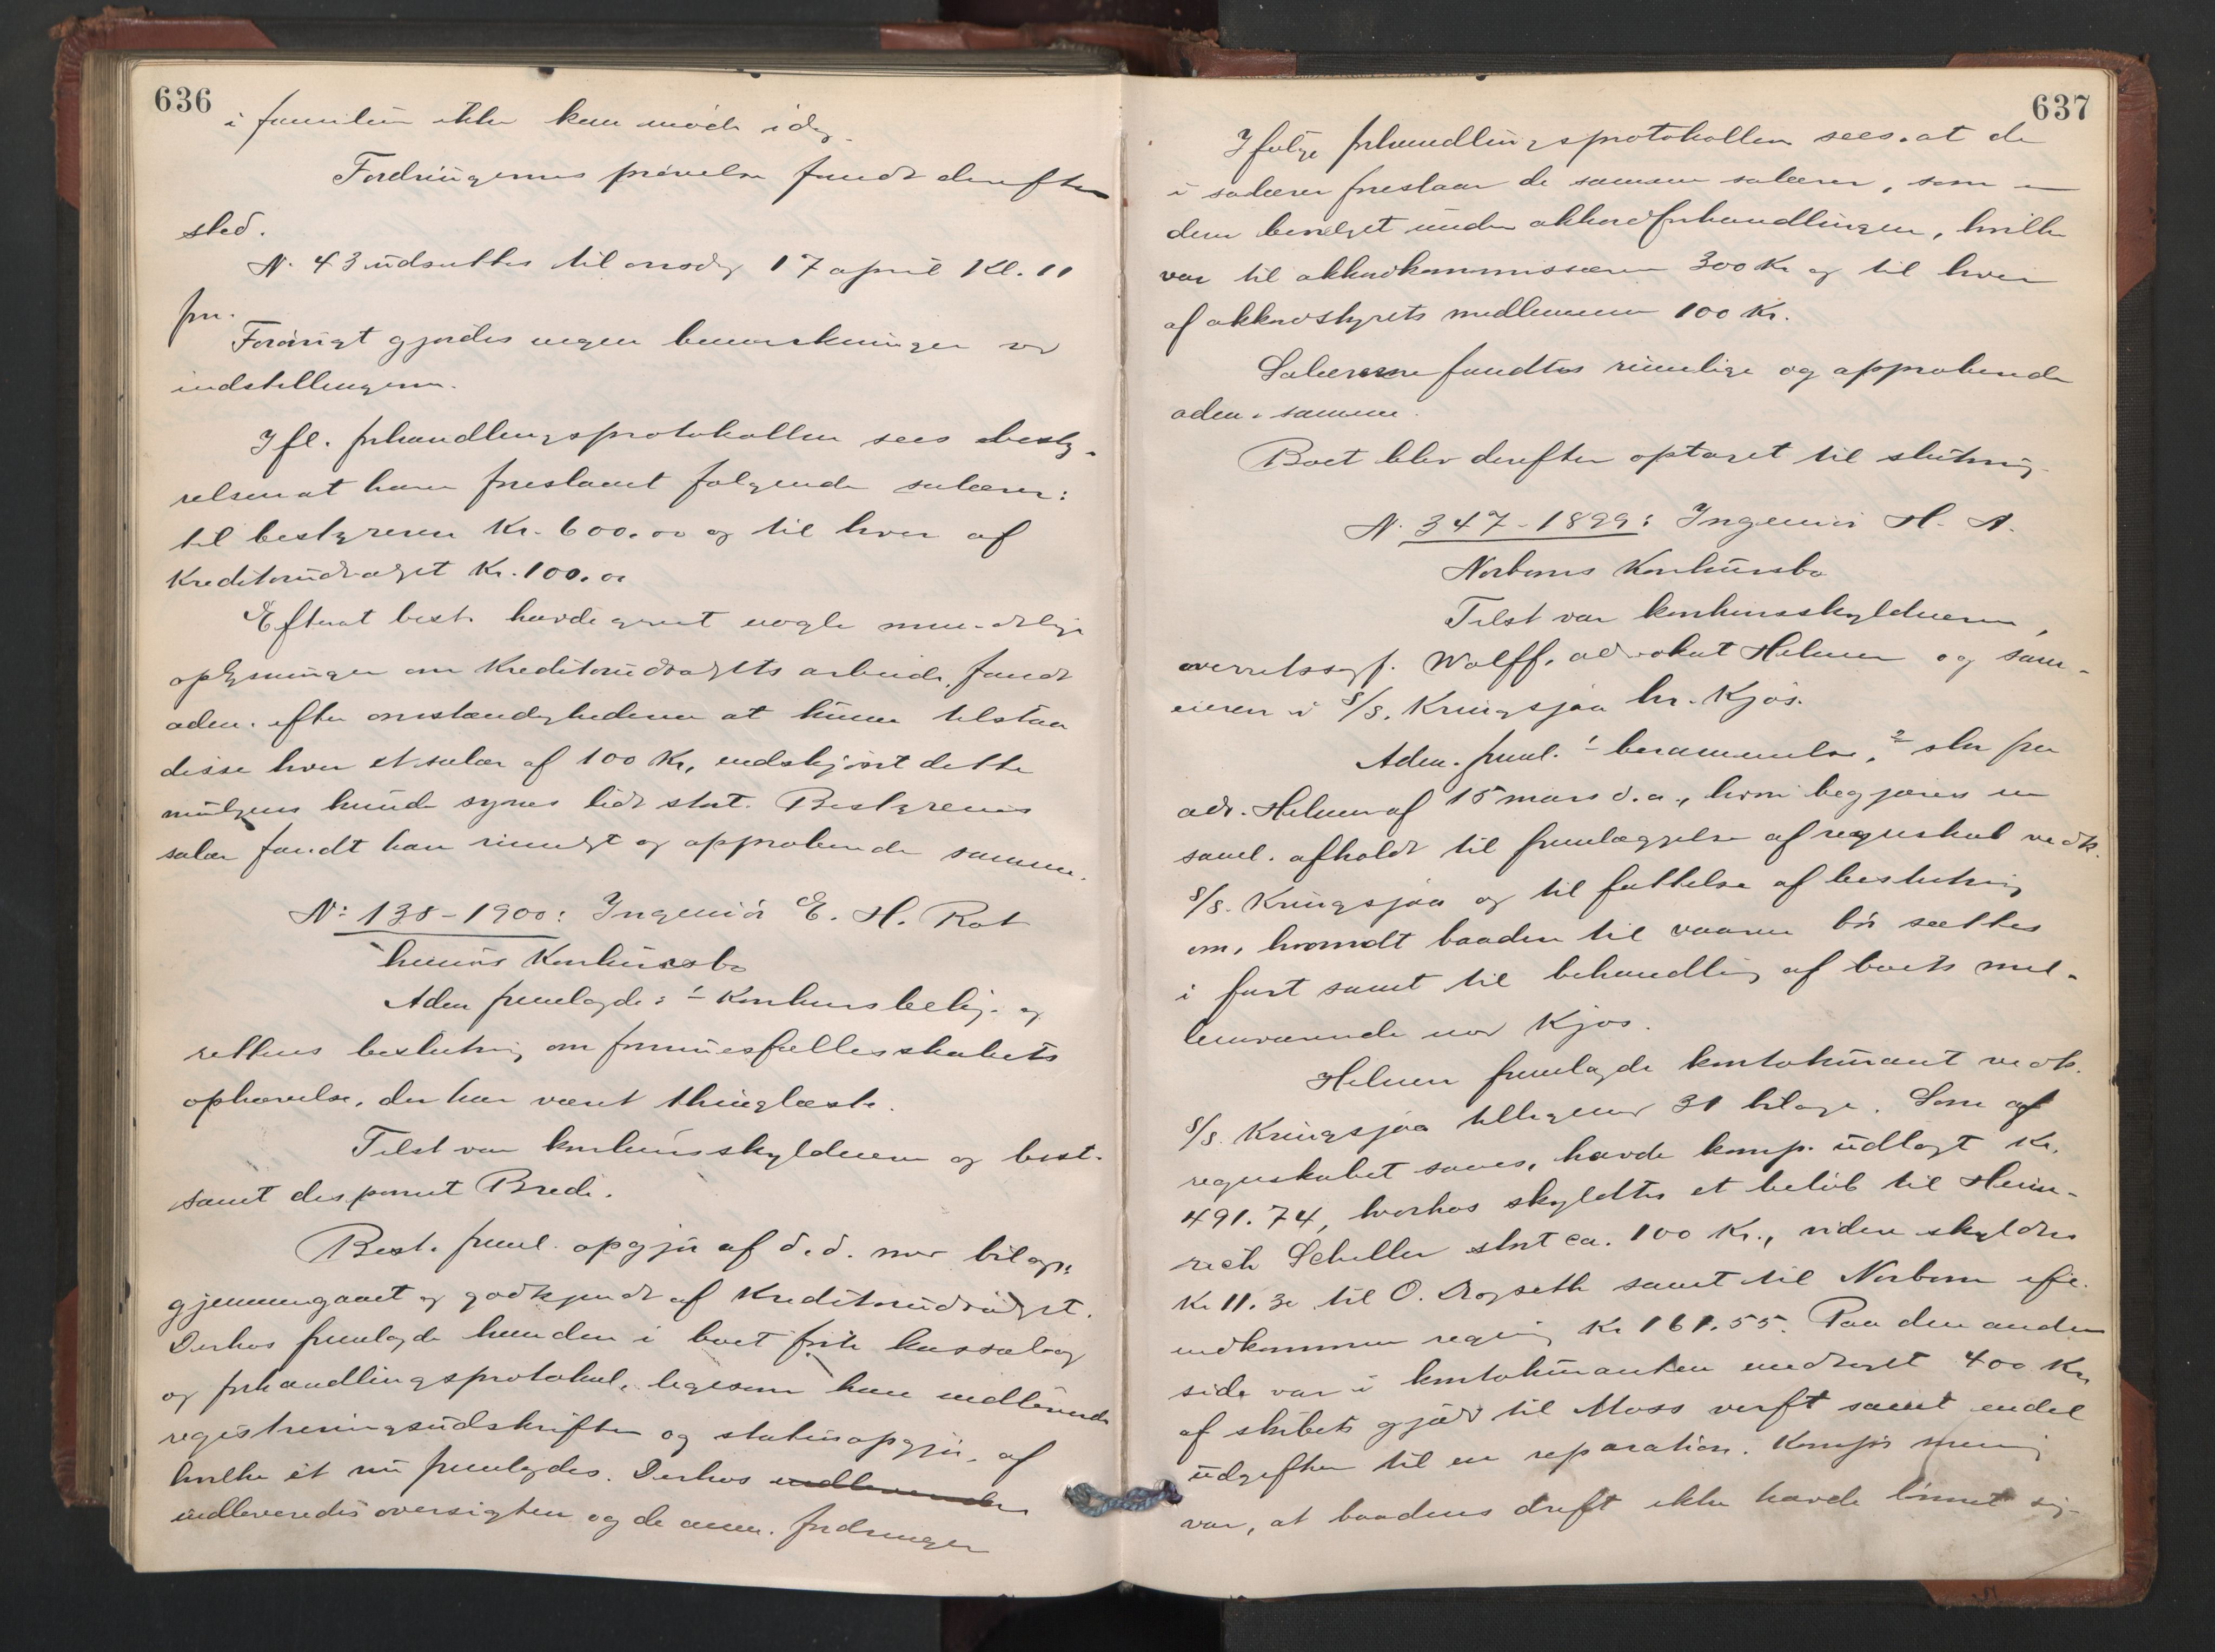 636
i familien ikke kan møde idag.
Fordringernes prøvelse fandt derefter
sted.
N. 43 udsattes til onsdag 17 april Kl. 11
fm.
Forøvrigt gjordes ingen bemærkninger ved
indstillingerne.
Ifl. forhandlingsprotokollen sees besty-
relsen at have foreslaaet følgende salærer:
til bestyreren Kr. 600.00 og til hver af
Kreditorudvalget Kr. 100.00
Efterat best. havde givet nogle mundtlige
oplysninger om Kreditorudvalgets arbeide, fandt
adm. efter omstændighederne at kunne tilstaa
disse hver et salær af 100 Kr., endskjønt dette
muligens kunde synes lidt stort. Bestyrerens
salær fandt han rimeligt og approberede samme.
No 138-1900: Ingeniør E. H. Rot
heims Konkursbo
Adm fremlagde: 1 Konkursbekj. og
rettens beslutning om formuesfællesskabets
ophævelse, der har været thinglæst.
Tilst var konkursskyldneren og best.
samt disponent Brede.
Best. freml. opgjør af d.d. med bilag,
gjennemgaaet og godkjendt af Kreditorudvalget.
Derhos fremlagde han den i boet førte kassabog
og forhandlingsprotokol, ligesom han indleverede
registreringsudskriften og statusopgjør, af
hvilke et nu fremlagdes. Derhos indleverede
indleveredes oversigten og de anm. fordringer
637
Ifølge forhandlingsprotokollen sees at de
i salærer foreslaar de samme salærer, som
dem bevilget under akkordforhandlingen, hvilke
var til akkordkommissæren 300 Kr og til hver
af akkordstyrets medlemmer 100 Kr.
Salærerne fandtes rimelige og approberede
adm. samme.
Boet blev derefter optaget til slutning.
N. 347-1899: Ingeniør H. A.
Norboms Konkursbo
Tilst var konkursskyldneren,
overretssagf. Wolff, advokat Helmer og sam-
eieren i S/S. Kringsjaa hr. Kjøs.
Adm. freml. 1 berammelse, 2 skr fra
adv. Helmer af 15 mars d.a., hvori begjæres en
saml. afholdt til fremlæggelse af regnskab vedk.
S/S. Kringsjaa og til fattelse af beslutning
om, hvorvidt baaden til vaaren bør sættes
i fart samt til behandling af boets mel-
lemværende med Kjøs.
Helmer fremlagde kontokurant vedk.
S/S. Kringsjaa tilligemed 31 bilage. Som af
regnskabet saaes, havde komp. udlagt Kr.
491.74, hvorhos skyldtes et beløb til Hein-
rich Schiller stort ca. 100 Kr., videre skyldtes
Kr 11.30 til O. Dragseth samt til Norbom
indkommen regning Kr 161.55. Paa den anden
side var i kontokuranten medtaget 400 Kr
af skibets gjæld til Moss verft samt endel
udgifter til en reparation. Komp's mening
var, at baadens drift ikke havde lønnet sig